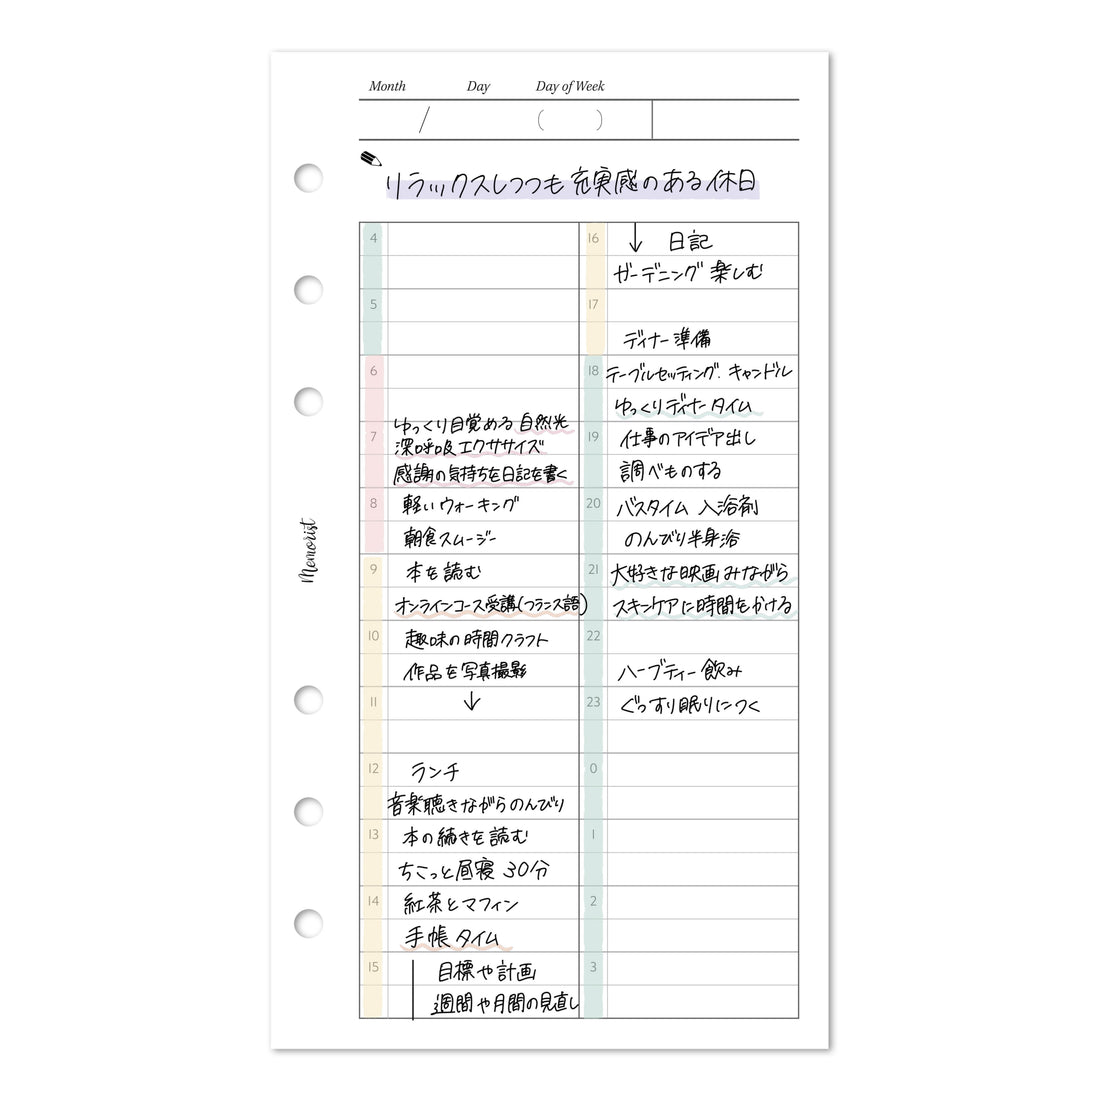 Month Day Day of Week
/ ( )
リラックスしつつも充実感のある休日
4
5
6
ゆっくり目覚める 自然光
7 深呼吸 エクササイズ
感謝の気持ちを日記を書く
8 軽いウォーキング
朝食スムージー
9 本を読む
オンラインコース受講(フランス語)
10 趣味の時間クラフト
作品を写真撮影
11 ↓
12 ランチ
音楽聴きながらのんびり
13 本の続きを読む
ちこっと昼寝 30分
14 紅茶とマフィン
手帳タイム
15 目標や計画
週間や月間の見直し
16 ↓ 日記
ガーデニング 楽しむ
17
ディナー準備
18 テーブルセッティング. キャンドル
ゆっくりディナータイム
19 仕事のアイデア出し
調べものする
20 バスタイム 入浴剤
のんびり半身浴
21 大好きな映画みながら
スキンケアに時間をかける
22
ハーブティー飲み
23 ぐっすり眠りにつく
0
1
2
3
Memorist